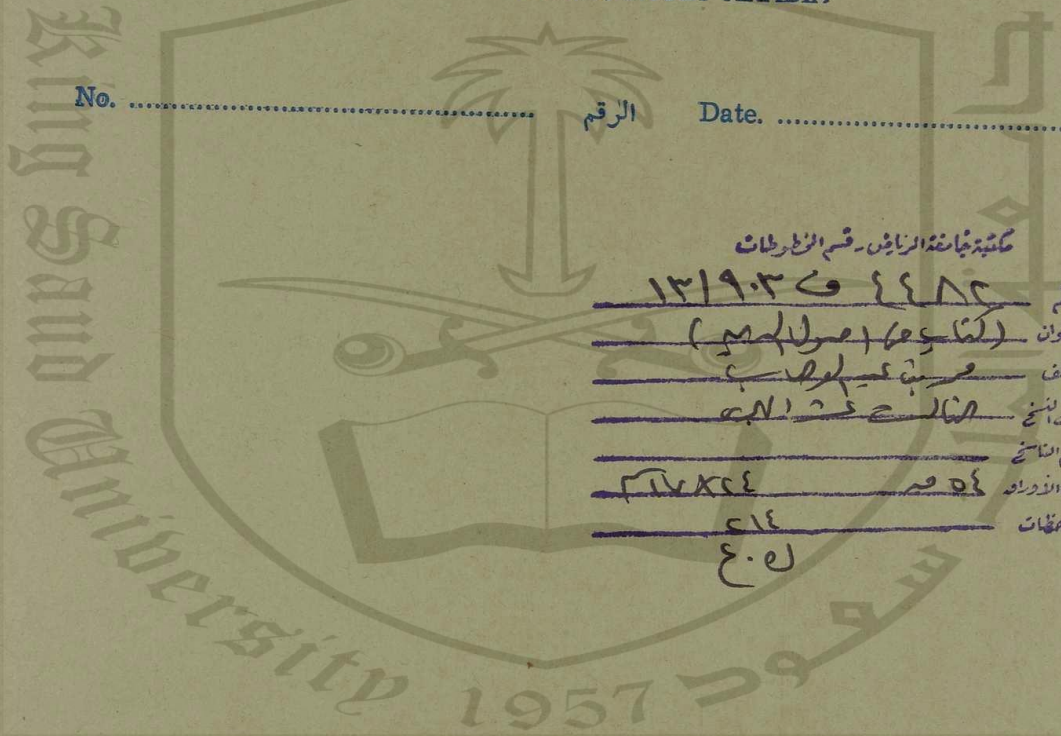 No. الرقم Date.
مكتبة جامعة الرياض - قسم المخطوطات
٤٤٨٢ ف ١٣/٩٠٣
(كتاب في اصول الدين)
محمد بن عبد الوهاب
الثالث عشر الهجري
الناسخ
٥٤ ق ٢٤×١٧
٢١٤
ك.ع
King Saud University 1957
سعود